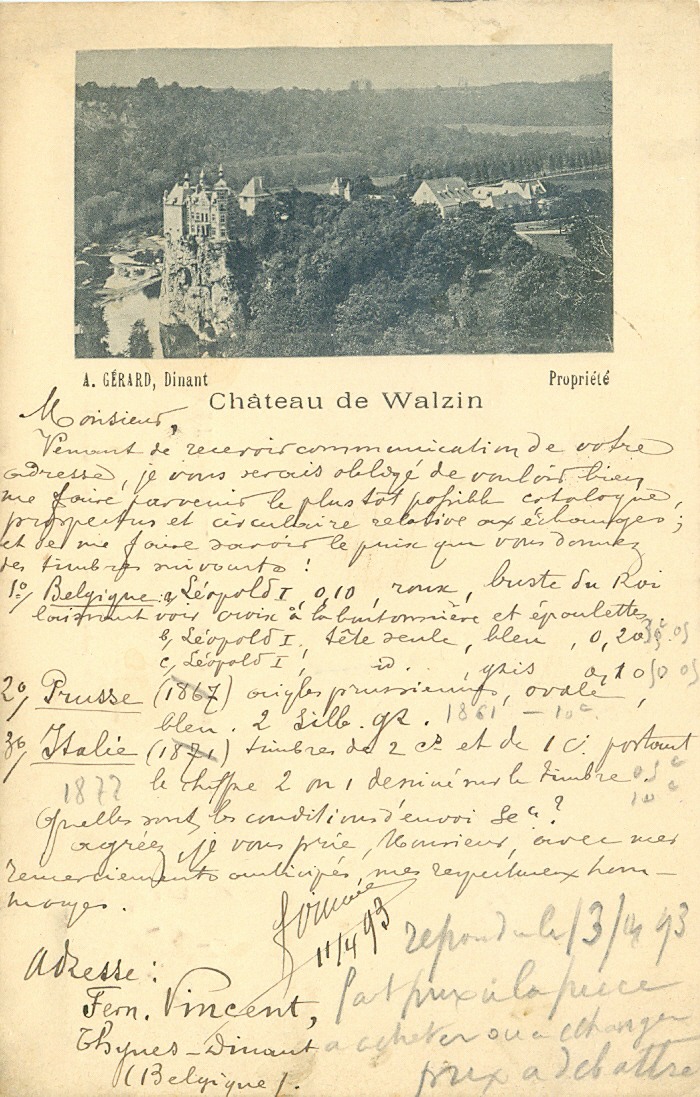 A. GÉRARD, Dinant Propriété
Château de Walzin
Monsieur,
Venant de recevoir communication de votre
adresse, je vous serais obligé de vouloir bien
me faire parvenir le plus tôt possible catalogue,
prospectus et circulaire relative aux échanges;
et de me faire savoir le prix que vous donnez
des timbres suivants !
1o/ Belgique: a, Léopold I, 0,10, roux, buste du Roi
laissant voir croix à la boutonnière et épaulettes
b, Léopold I, tête seule, bleu, 0,20 05
c, Léopold I, id. , gris 0,10 50 05
2o/ Prusse (1867) aigles prussiennes, ovale,
bleu. 2 Silb. gr. 1861 — 10c.
3o/ Italie (1871) timbres de 2 cs et de 1 c. portant
le chiffre 2 ou 1 dessiné sur le timbre 05c
1877 10c
Quelles sont les conditions d'envoi &ca ?
agréez, je vous prie, Monsieur, avec mes
remerciements anticipés, mes respectueux hom-
mages.
11/4 93
repondu le 13/4 93
Adresse:
Fern. Vincent, prix à la piece
Thynes-Dinant a acheter ou a échanger
(Belgique). prix a debattre